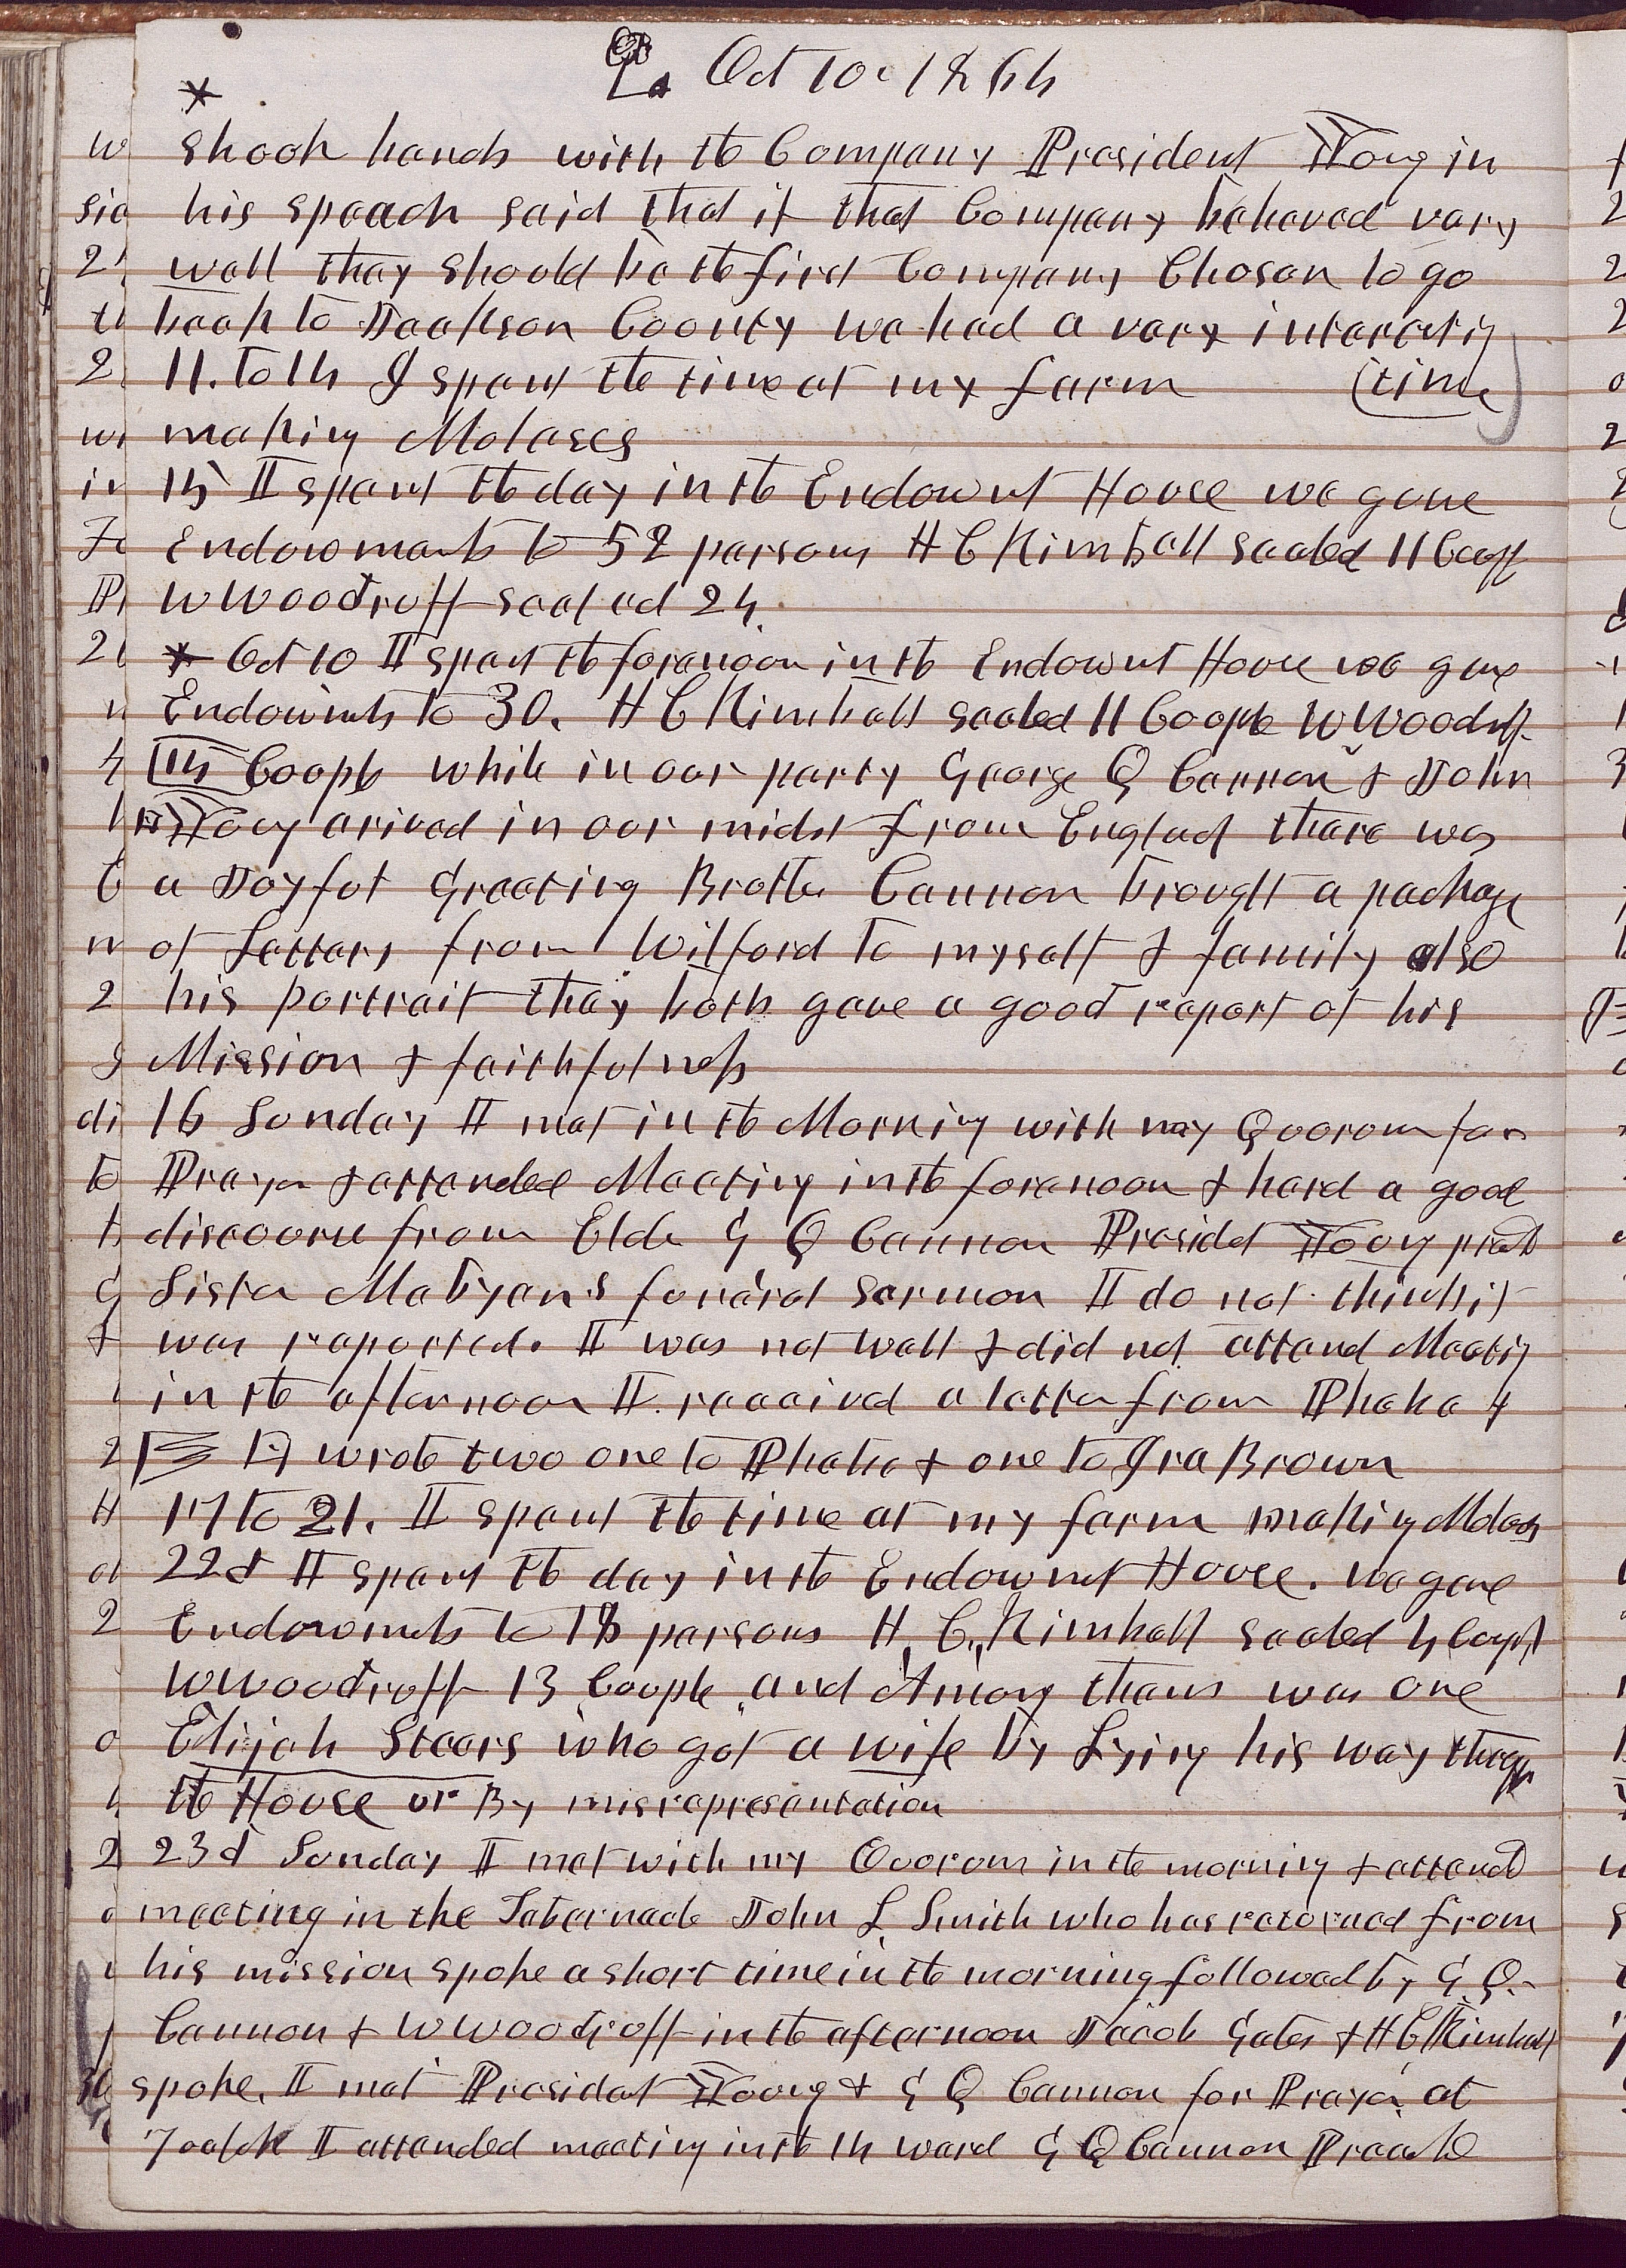 Oct 10. 1864
* shook hands with the Company President Young in
his speech said that if that Company behaved very
well they should be the first Company Chosen to go
back to Jackson County we had a very interesting
11. to 14 I spent the time at my farm (time)
making Molases
15 I spent the day in the Endowmt House we gave
Endowments to 52 persons H C Kimball sealed 11 Coupl
W Woodruff sealed 24.
* Oct 10 I spent the forenoon in the Endowmt House we gave
Endowmts to 30. H C Kimball sealed 11 Couple W Woodruff
14 Couple while in our party George Q Cannon & John
W Young arived in our midst from England there was
a Joyful Greeting Brother Cannon brought a package
of Letters from Wilford to myself & family also
his portrait they both gave a good report of his
Mission & faithfulness
16 Sunday I met in the Morning with my Quorum for
Prayer & attended Meeting in the forenoon & herd a good
discourse from Elder G Q Cannon Presidet Young preachd
Sister Mabyan's funeral sermon I do not think it
was reported. I was not well & did not attend Meeting
in the afternoon I received a letter from Phebe &
I wrote two one to Phebe & one to Ira Brown
17 to 21. I spent the time at my farm making Molass
22d I spent the day in the Endowmet House. we gave
Endowmets to 18 persons H. C. Kimball sealed 4 Coupl
W Woodruff 13 Couple and Among them was one
Elijah Steers who got a wife by Lying his way through
the House or By misrepresentation
23d Sunday I met with my Quorum in the morning & attend
meeting in the Tabernacle John L Smith who has returned from
his mission spoke a short time in the morning followed by G. Q.
Cannon & W Woodruff in the afternoon Jacob Gates & H C Kimball
spoke. I met Presidet Young & G Q Cannon for Prayer at
7 oclok I attended meeting in the 14 ward G Q Cannon Preachd